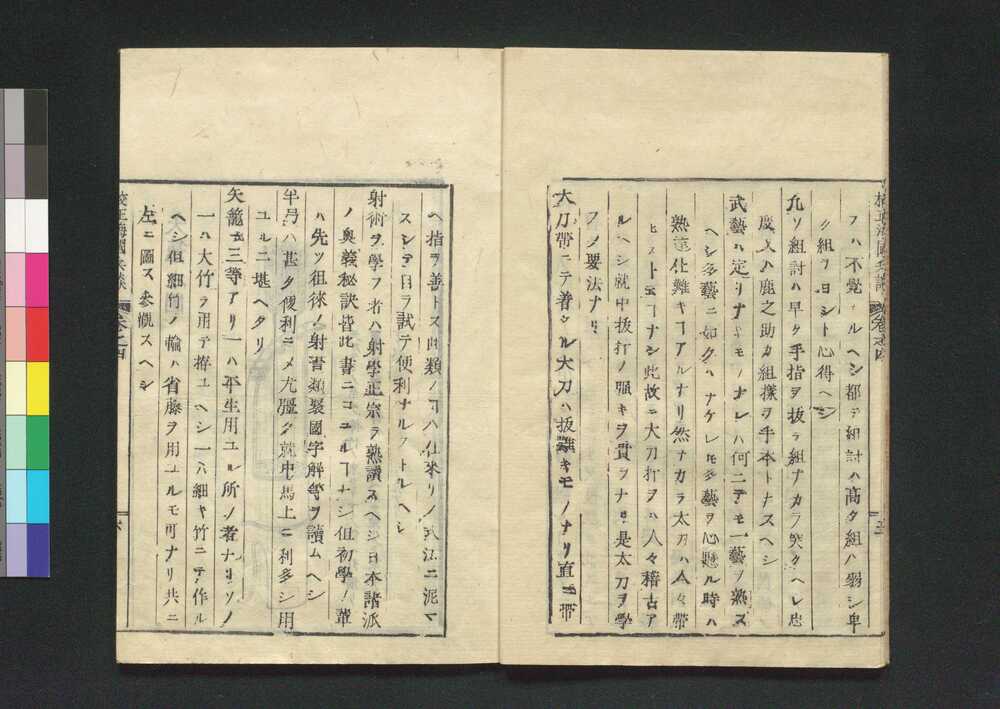 フハ不覺ナルヘシ都テ組討ハ高ク組ハ弱シ卑
ク組フヨシト心得ヘシ
九ソ組討ハ早ク手指ヲ抜ラ組ナカラ突クヘシ
度々ハ鹿之助カ組様ヲ手本トナスヘシ
武藝ハ定リナキモノナレハ何ニテモ一藝ヲ熟ス
ヘシ多藝ニ如クハナケレモ多藝ヲ心懸ル時ハ
熟達仕難キヿアルナリ然ナカラ太刀ハ人々帯
ヒストヿナシ此故ニ大刀打ヲハ人々稽古ア
ルヘシ就中抜打ノ強キヲ貫ヲナセ是太刀ヲ學
フノ要法ナリ
大刀帯ニテ着シル大刀ハ抜難キモノナリ直ニ帯
校正海國兵談 卷之四
五
ヘ指ヲ善トス此類ノヿハ仕來リノ式法ニ泥マ
スシテ自ラ試テ便利ナルヲトルヘシ
射術ヲ學フ者ハ射學正宗ヲ熟讀スヘシ日本諸派
ノ奥義秘訣皆此書ニコユルヿナシ但初學ノ輩
ハ先ツ徂徠ノ射書類聚國字解等ヲ讀ムヘシ
半弓ハ甚タ便利ニメ尤彊ク就中馬上ニ利多シ用
ユルニ堪ヘタリ
矢籠ニ三等アリ一ハ平生用ユル所ノ者ナリソノ
一ハ大竹ヲ用テ拵ユヘシ一ハ細キ竹ニテ作ル
ヘシ但細竹ノ輪ハ省藤ヲ用ユルモ可ナリ共ニ
左ニ圖ス参慨スヘシ
校正海國兵談 卷之四
六